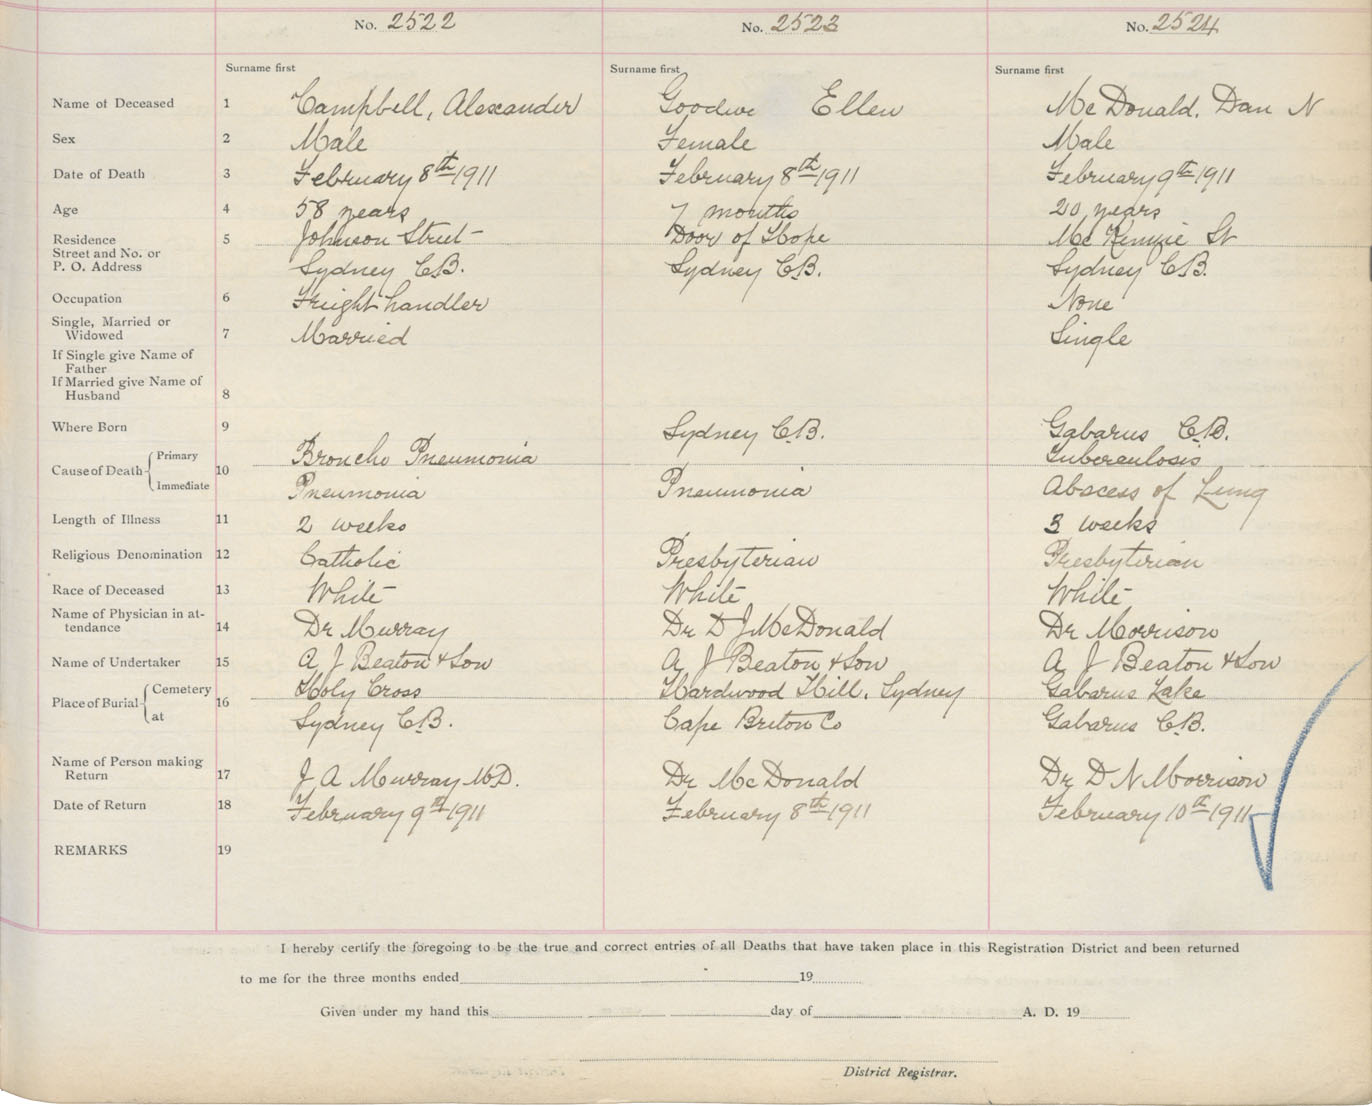 No. 2522 No. 2523 No. 2524
Surname first Surname first Surname first
Name of Deceased 1 Campbell, Alexander Goodwe Ellen McDonald, Dan N
Sex 2 Male Female Male
Date of Death 3 February 8th 1911 February 8th 1911 February 9th 1911
Age 4 58 years 7 months 20 years
Residence 5 Johnson Street Door of Hope McKenzie St
Street and No. or
P. O. Address Sydney C.B. Sydney C.B. Sydney C.B.
Occupation 6 Freight handler None
Single, Married or
Widowed 7 Married Single
If Single give Name of
Father
If Married give Name of
Husband 8
Where Born 9 Sydney C.B. Gabarus C.B.
Cause of Death 10 Primary Broncho Pneumonia Tuberculosis
Immediate Pneumonia Pneumonia Abscess of Lung
Length of Illness 11 2 weeks 3 weeks
Religious Denomination 12 Catholic Presbyterian Presbyterian
Race of Deceased 13 White White White
Name of Physician in at-
tendance 14 Dr Murray Dr D J McDonald Dr Morrison
Name of Undertaker 15 A J Beaton & Son A J Beaton & Son A J Beaton & Son
Place of Burial 16 Cemetery Holy Cross Hardwood Hill, Sydney Gabarus Lake
at Sydney C.B. Cape Briton Co Gabarus C.B.
Name of Person making
Return 17 J A Murray M.D. Dr McDonald Dr D N Morrison
Date of Return 18 February 9th 1911 February 8th 1911 February 10th 1911
REMARKS 19
I hereby certify the foregoing to be the true and correct entries of all Deaths that have taken place in this Registration District and been returned
to me for the three months ended 19
Given under my hand this day of A. D. 19
District Registrar.